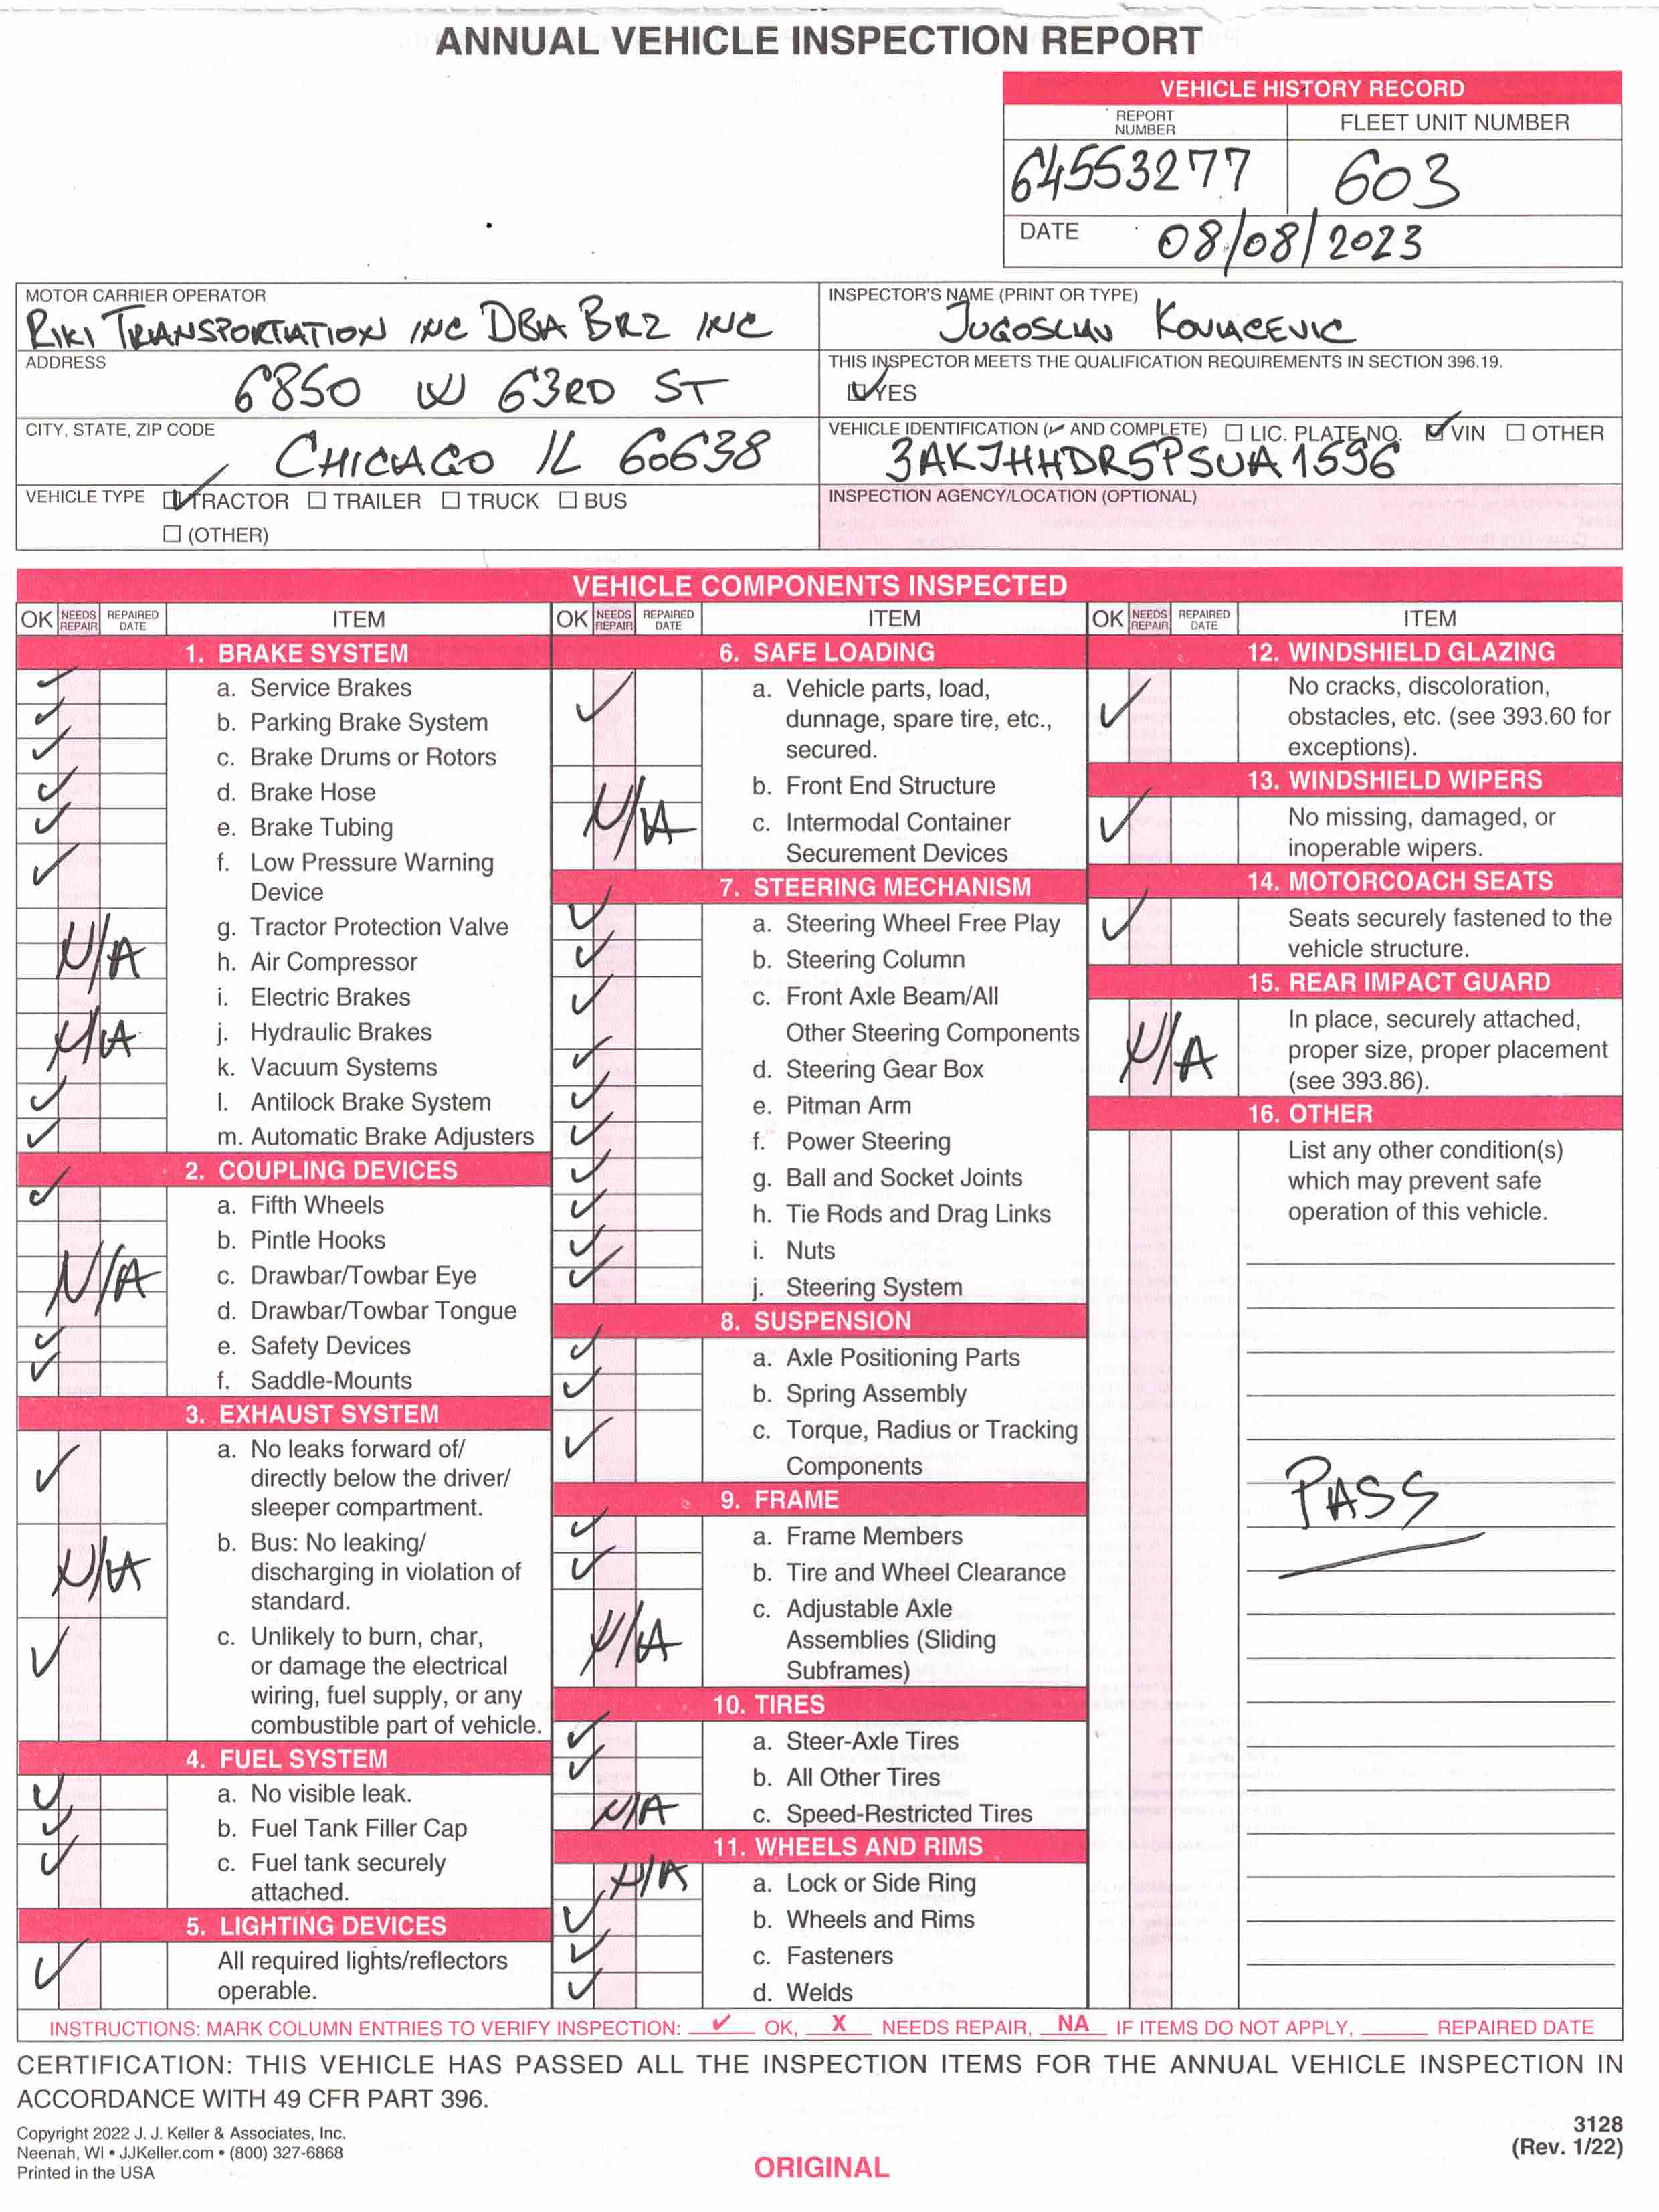 ANNUAL VEHICLE INSPECTION REPORT
VEHICLE HISTORY RECORD
REPORT NUMBER
FLEET UNIT NUMBER
64553277
603
DATE 08/08/2023
MOTOR CARRIER OPERATOR
RIKI TRANSPORTATION INC DBA BRZ INC
INSPECTOR'S NAME (PRINT OR TYPE)
JUGOSLAV KOVACEVIC
ADDRESS
6850 W 63RD ST
THIS INSPECTOR MEETS THE QUALIFICATION REQUIREMENTS IN SECTION 396.19.
☑ YES
CITY, STATE, ZIP CODE
CHICAGO IL 60638
VEHICLE IDENTIFICATION (✓ AND COMPLETE) ☐ LIC. PLATE NO. ☑ VIN ☐ OTHER
3AKJHHDR5PSUA1596
VEHICLE TYPE ☑ TRACTOR ☐ TRAILER ☐ TRUCK ☐ BUS
☐ (OTHER)
INSPECTION AGENCY/LOCATION (OPTIONAL)
VEHICLE COMPONENTS INSPECTED
OK NEEDS REPAIR REPAIRED DATE ITEM
1. BRAKE SYSTEM
✓ a. Service Brakes
✓ b. Parking Brake System
✓ c. Brake Drums or Rotors
✓ d. Brake Hose
✓ e. Brake Tubing
✓ f. Low Pressure Warning
Device
g. Tractor Protection Valve
N/A h. Air Compressor
i. Electric Brakes
N/A j. Hydraulic Brakes
k. Vacuum Systems
✓ l. Antilock Brake System
✓ m. Automatic Brake Adjusters
2. COUPLING DEVICES
✓ a. Fifth Wheels
b. Pintle Hooks
N/A c. Drawbar/Towbar Eye
d. Drawbar/Towbar Tongue
✓ e. Safety Devices
✓ f. Saddle-Mounts
3. EXHAUST SYSTEM
✓ a. No leaks forward of/
directly below the driver/
sleeper compartment.
N/A b. Bus: No leaking/
discharging in violation of
standard.
✓ c. Unlikely to burn, char,
or damage the electrical
wiring, fuel supply, or any
combustible part of vehicle.
4. FUEL SYSTEM
✓ a. No visible leak.
✓ b. Fuel Tank Filler Cap
✓ c. Fuel tank securely
attached.
5. LIGHTING DEVICES
✓ All required lights/reflectors
operable.
OK NEEDS REPAIR REPAIRED DATE ITEM
6. SAFE LOADING
✓ a. Vehicle parts, load,
dunnage, spare tire, etc.,
secured.
b. Front End Structure
N/A c. Intermodal Container
Securement Devices
7. STEERING MECHANISM
✓ a. Steering Wheel Free Play
✓ b. Steering Column
✓ c. Front Axle Beam/All
Other Steering Components
✓ d. Steering Gear Box
✓ e. Pitman Arm
✓ f. Power Steering
✓ g. Ball and Socket Joints
✓ h. Tie Rods and Drag Links
✓ i. Nuts
✓ j. Steering System
8. SUSPENSION
✓ a. Axle Positioning Parts
✓ b. Spring Assembly
✓ c. Torque, Radius or Tracking
Components
9. FRAME
✓ a. Frame Members
✓ b. Tire and Wheel Clearance
N/A c. Adjustable Axle
Assemblies (Sliding
Subframes)
10. TIRES
✓ a. Steer-Axle Tires
✓ b. All Other Tires
N/A c. Speed-Restricted Tires
11. WHEELS AND RIMS
N/A a. Lock or Side Ring
✓ b. Wheels and Rims
✓ c. Fasteners
✓ d. Welds
OK NEEDS REPAIR REPAIRED DATE ITEM
12. WINDSHIELD GLAZING
✓ No cracks, discoloration,
obstacles, etc. (see 393.60 for
exceptions).
13. WINDSHIELD WIPERS
✓ No missing, damaged, or
inoperable wipers.
14. MOTORCOACH SEATS
✓ Seats securely fastened to the
vehicle structure.
15. REAR IMPACT GUARD
N/A In place, securely attached,
proper size, proper placement
(see 393.86).
16. OTHER
List any other condition(s)
which may prevent safe
operation of this vehicle.
PASS
INSTRUCTIONS: MARK COLUMN ENTRIES TO VERIFY INSPECTION: ✓ OK, X NEEDS REPAIR, NA IF ITEMS DO NOT APPLY, ____ REPAIRED DATE
CERTIFICATION: THIS VEHICLE HAS PASSED ALL THE INSPECTION ITEMS FOR THE ANNUAL VEHICLE INSPECTION IN
ACCORDANCE WITH 49 CFR PART 396.
Copyright 2022 J. J. Keller & Associates, Inc.
Neenah, WI • JJKeller.com • (800) 327-6868
Printed in the USA
ORIGINAL
3128
(Rev. 1/22)